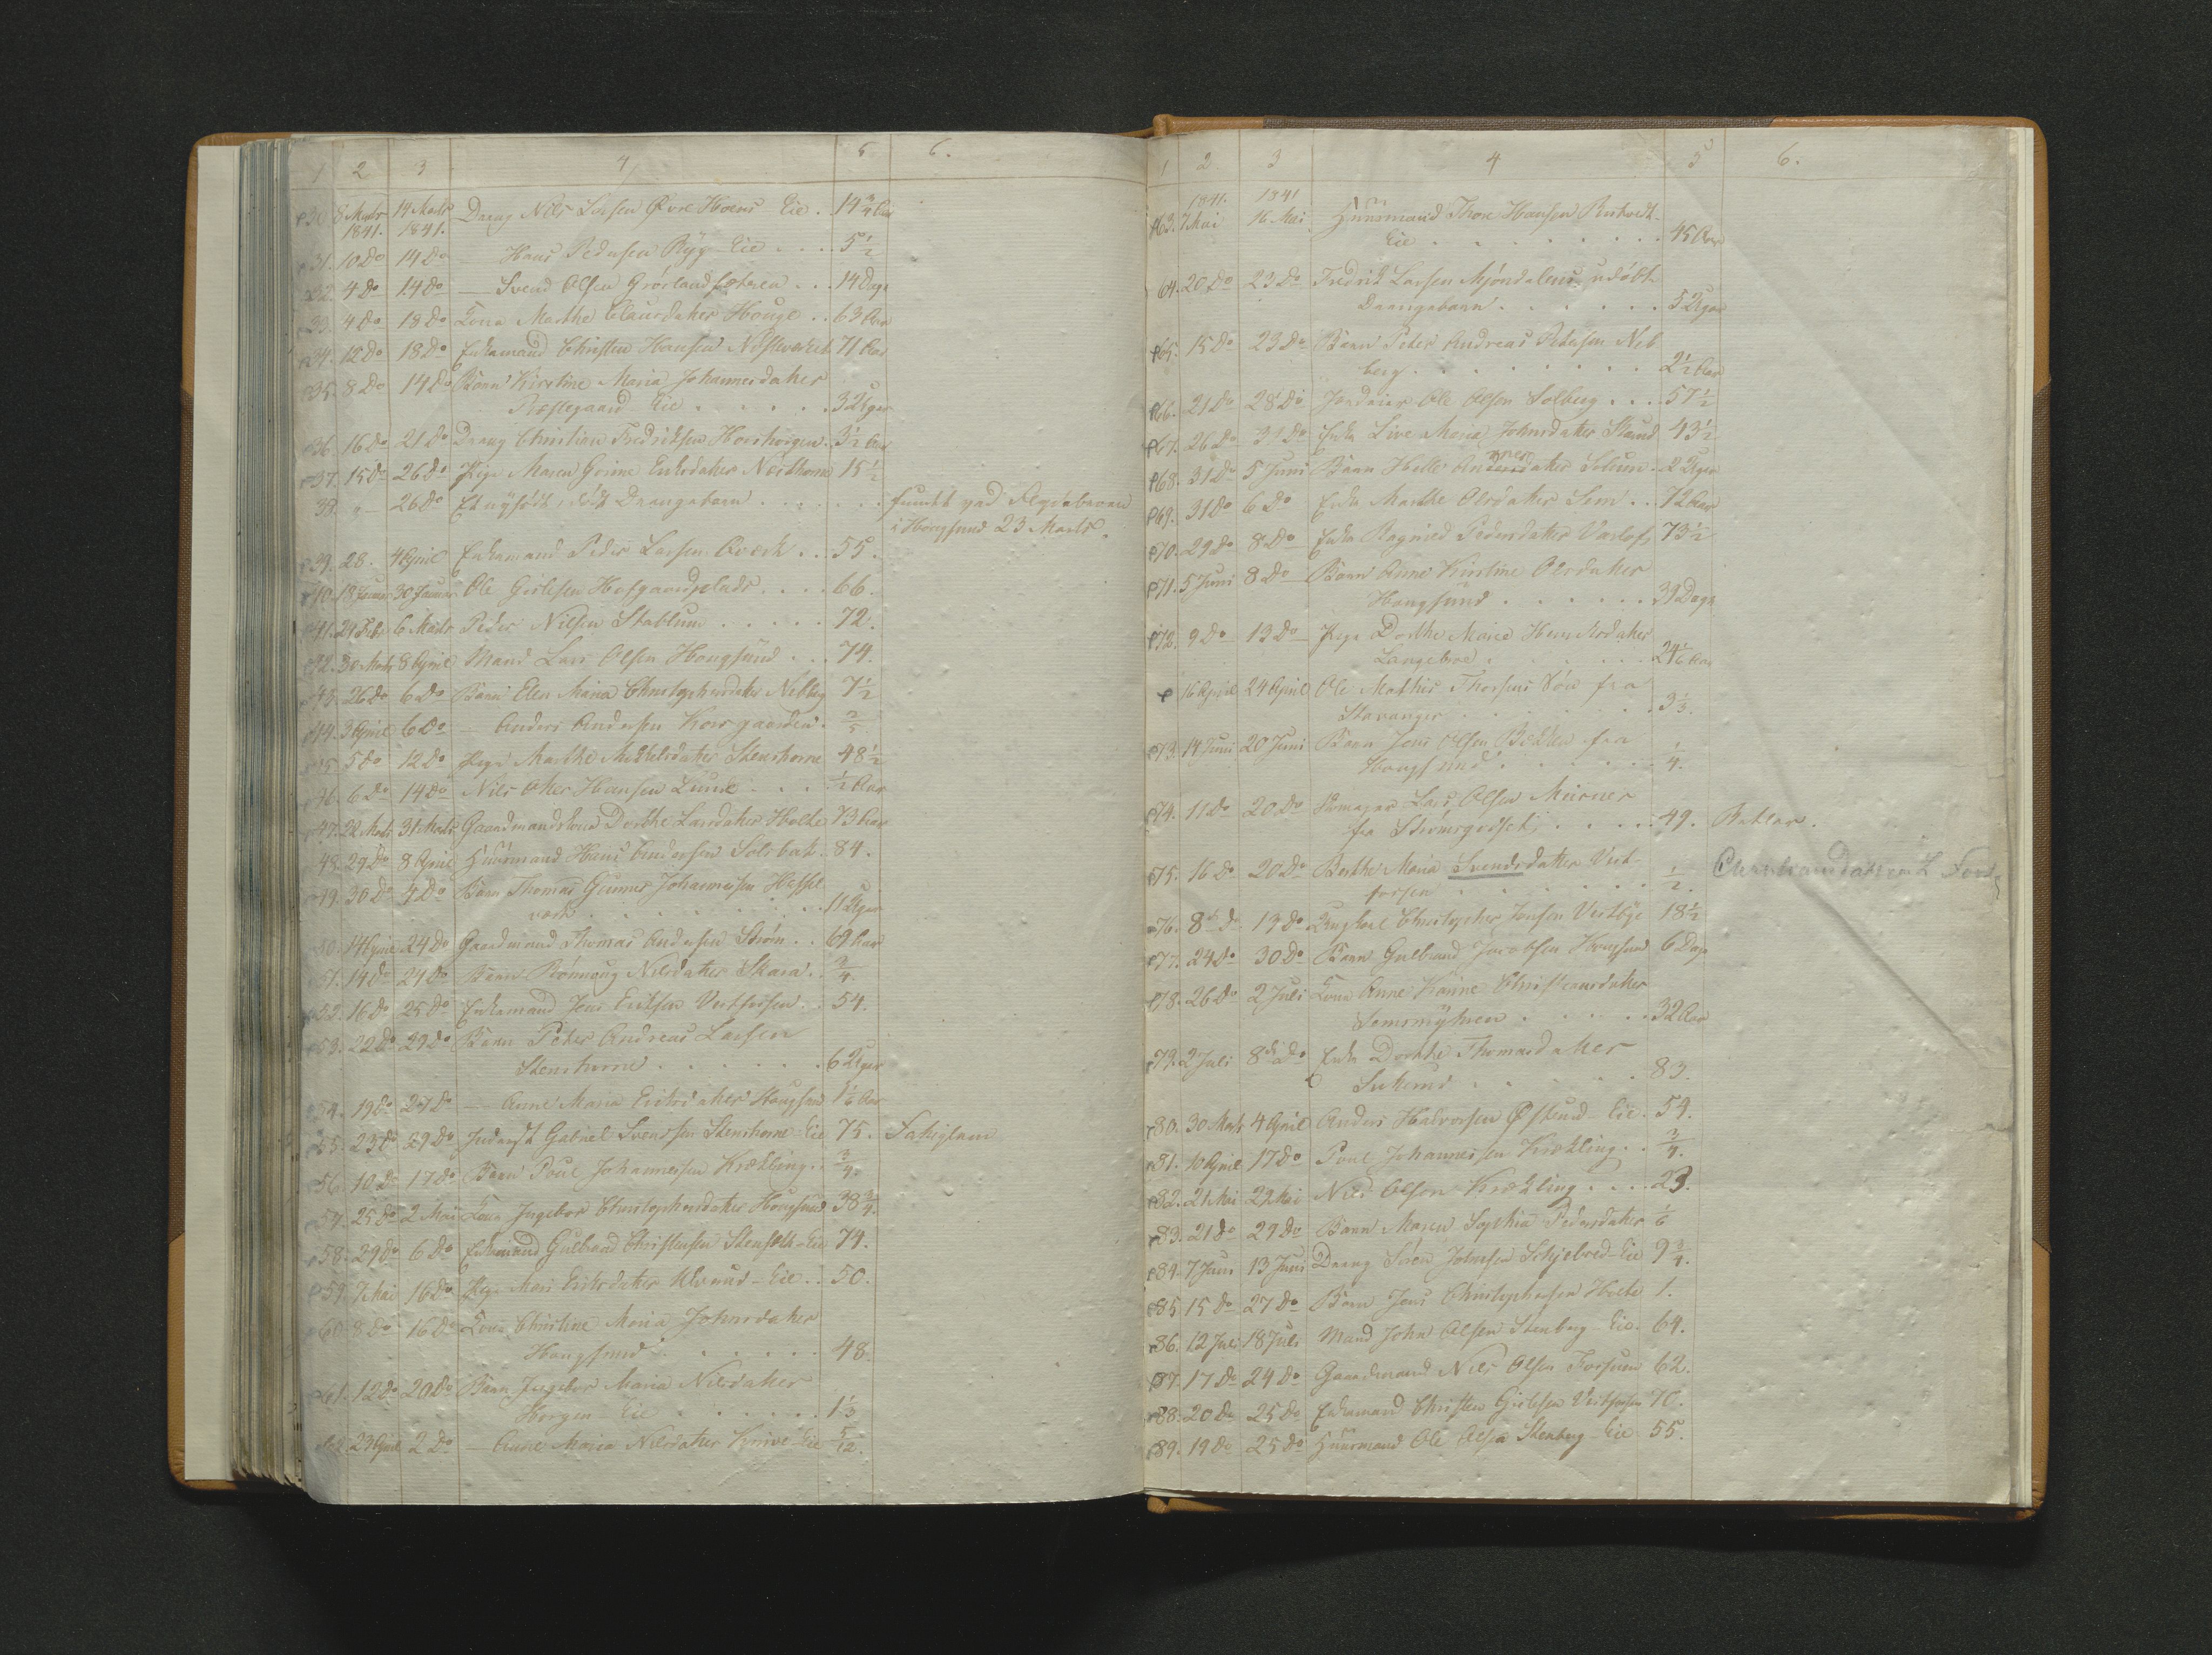 1 2 3 4 5 6.
30 8 Marts 14 Marts Dreng Nils Larsen Øvre Hoens Eie . 14 3/4 Aar
1841. 1841.
31. 10 Do 14 Do — Hans Pedersen Ryg Eie . . . . 5 1/2
32. 4 Do 14 Do — Svend Olsen . . . 14 Dage
33. 4 Do 18 Do Kona Marthe Clausdatter Houge . . 63 Aar
34. 12 Do 18 Do Enkemand Christen Hansen 71 Aar
35. 8 Do 14 Do Barn Kirstine Maria Johannesdatter
Præstegaard Eie . . . . . 3 Uger
36. 16 Do 21 Do Dreng Christian Fredriksen Horshorgen . 3 1/2 Aar
37. 15 Do 26 Do Pige Maren 15 1/2
38. " 26 Do Et nyfødt, dødt Drengebarn . . . . . . fundet ved
i Hougsund 23 Marts.
39. 28. 4 April Enkemand Peder Larsen . . . 55.
40. 18 Januar 30 Januar Ole Hofgaardplads . . . . 66.
41. 24 Febr 6 Marts Peder Nilsen Stablum . . . . . 72.
42. 30 Marts 8 April Mand Lars Olsen Hougsund . . . 74.
43. 26 Do 6 Do Barn Elen Maria Christophersdatter Nebberg 7 1/2
44. 3 April 6 Do — Anders Andersen Korsgaarden .
45. 5 Do 12 Do Pige Marthe Mikkelsdatter Stenshorne 48 1/2
46. 6 Do 14 Do Nils Hansen Lunde . . . 1/2 Aar
47. 22 Marts 31 Marts Gaardmandskona Dorthe Larsdatter Holte 73 Aar
48. 29 Do 8 April Huusmand Hans Andersen Solsbak . 84.
49. 30 Do 4 Do Barn Thomas Gunnar Johannessen Hassel
værk . . . . . . . . . 11 Uger
50. 14 April 24 Do Gaardmand Thomas Andersen Strøm . . 69 Aar
51. 14 Do 24 Do Barn Rønnaug Nilsdatter Skara . . 3/4
52. 16 Do 25 Do Enkemand Jens Eriksen Vestfossen . . 54.
53. 22 Do 29 Do Barn Peter Andreas Larsen
Stenshorne . . . . . . . 6 Uger
54. 19 Do 27 Do — Anne Maria Eriksdatter Hougsund 1 1/6 Aar
55. 23 Do 29 Do Inderst Gabriel Svendsen Stenshorne-Eie 75. Fattiglem
56. 10 Do 17 Do Barn Poul Johannessen Krækling . . 3/4.
57. 25 Do 2 Mai Kona Ingebor Christophersdatter Hougsund 38 3/4.
58. 29 Do 6 Do Enkemand Gulbrand Christensen Stenseth-Eie 74.
59. 7 Mai 16 Do Pige Mari Eriksdatter Ulverud-Eie . . 50.
60. 8 Do 16 Do Kona Christine Maria Johnsdatter
Hougsund . . . . . . . 48.
61. 12 Do 20 Do Barn Ingebor Maria Nilsdatter
Horgen Eie . . . . . . 1 1/3
62. 23 April 2 Do — Anne Maria Nilsdatter Eie 5/12.
1 2 3 4 5 6.
1841. 1841
63. 7 Mai 16 Mai Huusmand Thore Hansen
Eie . . . . . . . . . 45 Aar
64. 20 Do 23 Do Fredrik Larsen Mjøndalens udøbt
Drengebarn . . . . . . 5 Uger
65. 15 Do 23 Do Barn Peter Andreas Petersen Neb
berg . . . . . . . . . 2 1/2 Aar
66. 21 Do 28 Do Ole Olsen Solberg . . . 57 1/2
67. 26 Do 31 Do Enke Live Maria Johnsdatter Skarud 43 1/2
68. 31 Do 5 Juni Barn Helle Solum . 2 Uger
69. 31 Do 6 Do Enke Marthe Olsdatter Sem . . 72 Aar
70. 29 Do 8 Do Enke Ragnild Varlos 73 1/2
71. 5 Juni 8 Do Barn Anne Kirstine Olsdatter
Hougsund . . . . . . 39 Dage
72. 9 Do 13 Do Pige Dorthe Maria
Langebroe . . . . . . 24 1/6 Aar
16 April 24 April Ole Mathis Thorsens Søn fra
Stavanger . . . . . . 3 1/3.
73. 14 Juni 20 Juni Barn Jens Olsen fra
Hougsund . . . . . . 1/4.
74. 11 Do 20 Do Skomager Lars Olsen Muserer
fra Strømsgodset . . . . . 49. Betler.
75. 16 Do 20 Do Berthe Maria Svendsdatter Vest
fossen . . . . . . . 1/2. Christiansdatter
76. 8 Do 13 Do Ungkarl Christopher Jensen Vestbye 18 1/2
77. 24 Do 30 Do Barn Gulbrand Jacobsen Hougsund 6 Dage
78. 26 Do 2 Juli Kona Anne Karine Christiansdatter
Semsmyhren . . . . . 32 Aar
79. 2 Juli 8de Do Enke Dorthe Thomasdatter
. . . . . . . 83.
80. 30 Marts 4 April Anders Halvorsen Østerud Eie . 54.
81. 10 April 17 Do Poul Johannessen Krækling . . 3/4.
82. 21 Mai 29 Mai Nils Olsen Krækling . . . . 23.
83. 21 Do 29 Do Barn Maren Sophia Pedersdatter 1/6
84. 7 Juni 13 Juni Dreng Søren Johnsen Skjelbred-Eie 9 3/4.
85. 15 Do 27 Do Barn Jens Christophersen Holte 1.
86. 12 Juli 18 Juli Mand John Olsen Stenberg Eie . 64.
87. 17 Do 24 Do Gaardmand Nils Olsen Fossum 62.
88. 20 Do 25 Do Enkemand Christen Vestfossen 70.
89. 19 Do 25 Do Huusmand Ole Olsen Stenberg-Eie 55.